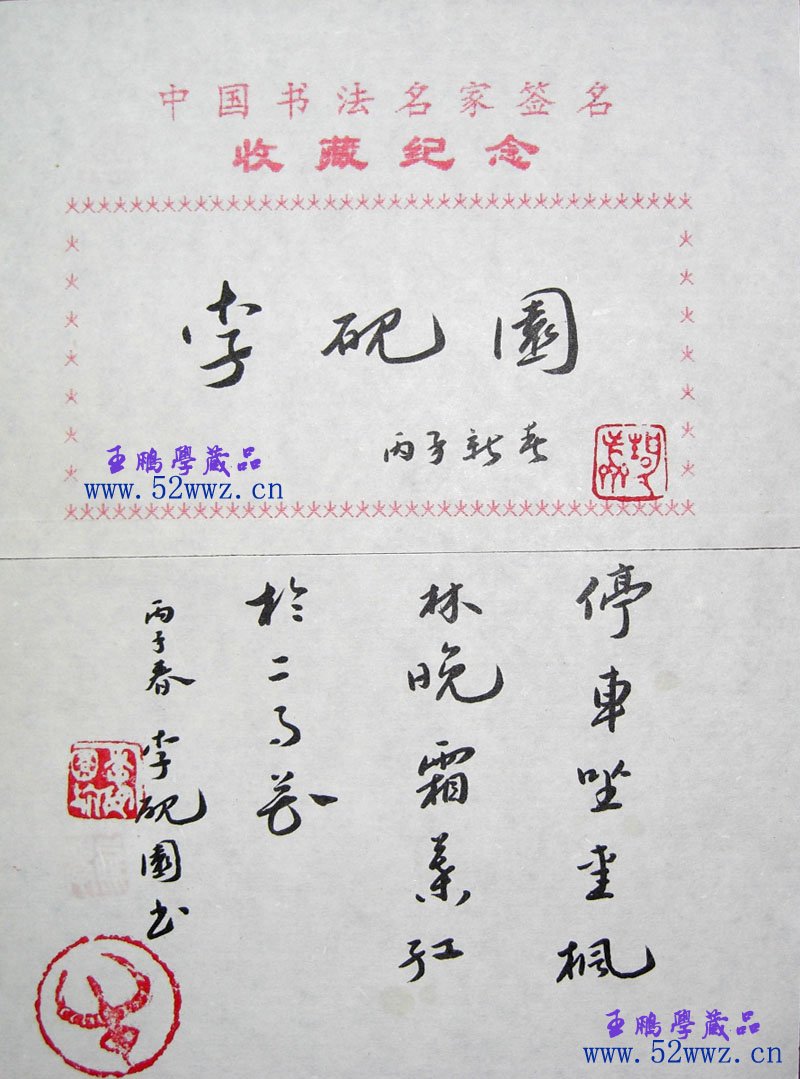 中国书法名家签名
收藏纪念
李砚園
丙子新春
王鵬學藏品
www.52wwz.cn
停車坐愛楓
林晚霜葉红
於二月花
丙子春 李砚園书
王鵬學藏品
www.52wwz.cn